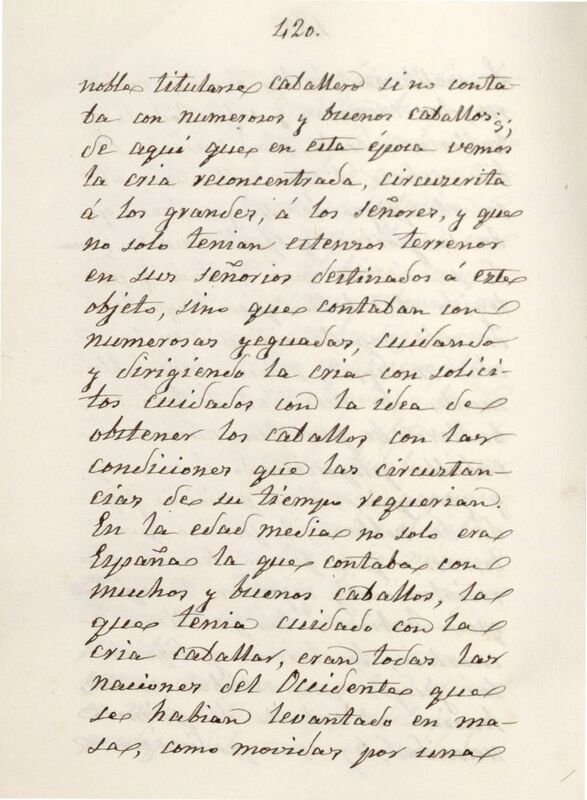 420.
noble titularse caballero si no conta-
ba con numerosos y buenos caballos;
de aquí que en esta época vemos
la cria reconcentrada, circuscrita
á los grandes, á los señores, y que
no solo tenian estensos terrenos
en sus señorios destinados á este
objeto, sino que contaban con
numerosas yeguadas, cuidando
y dirigiendo la cria con solici-
tos cuidados con la idea de
obstener los caballos con las
condiciones que las circustan-
cias de su tiempo requerian.
En la edad media no solo era
España la que contaba con
muchos y buenos caballos, la
que tenia cuidado con la
cria caballar, eran todas las
naciones del Occidente que
se habian levantado en ma-
sa, como movidas por una